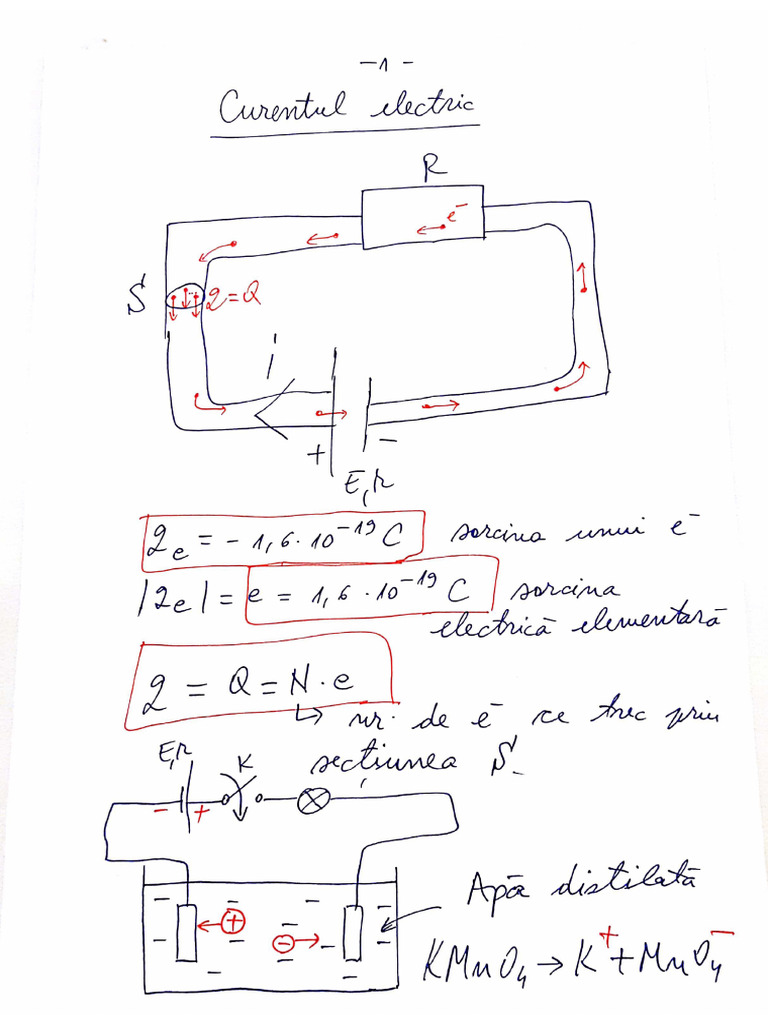 -1-
Curentul electric
R
e⁻
S q=Q
i
+ -
E,r
qₑ = -1,6·10⁻¹⁹ C sarcina unui e⁻
|qₑ| = e = 1,6·10⁻¹⁹ C sarcina
electrică elementară
q = Q = N·e
↳ nr. de e⁻ ce trec prin
secțiunea S.
E,r K
- +
Apă distilată
+ -
KMnO₄ → K⁺ + MnO₄⁻